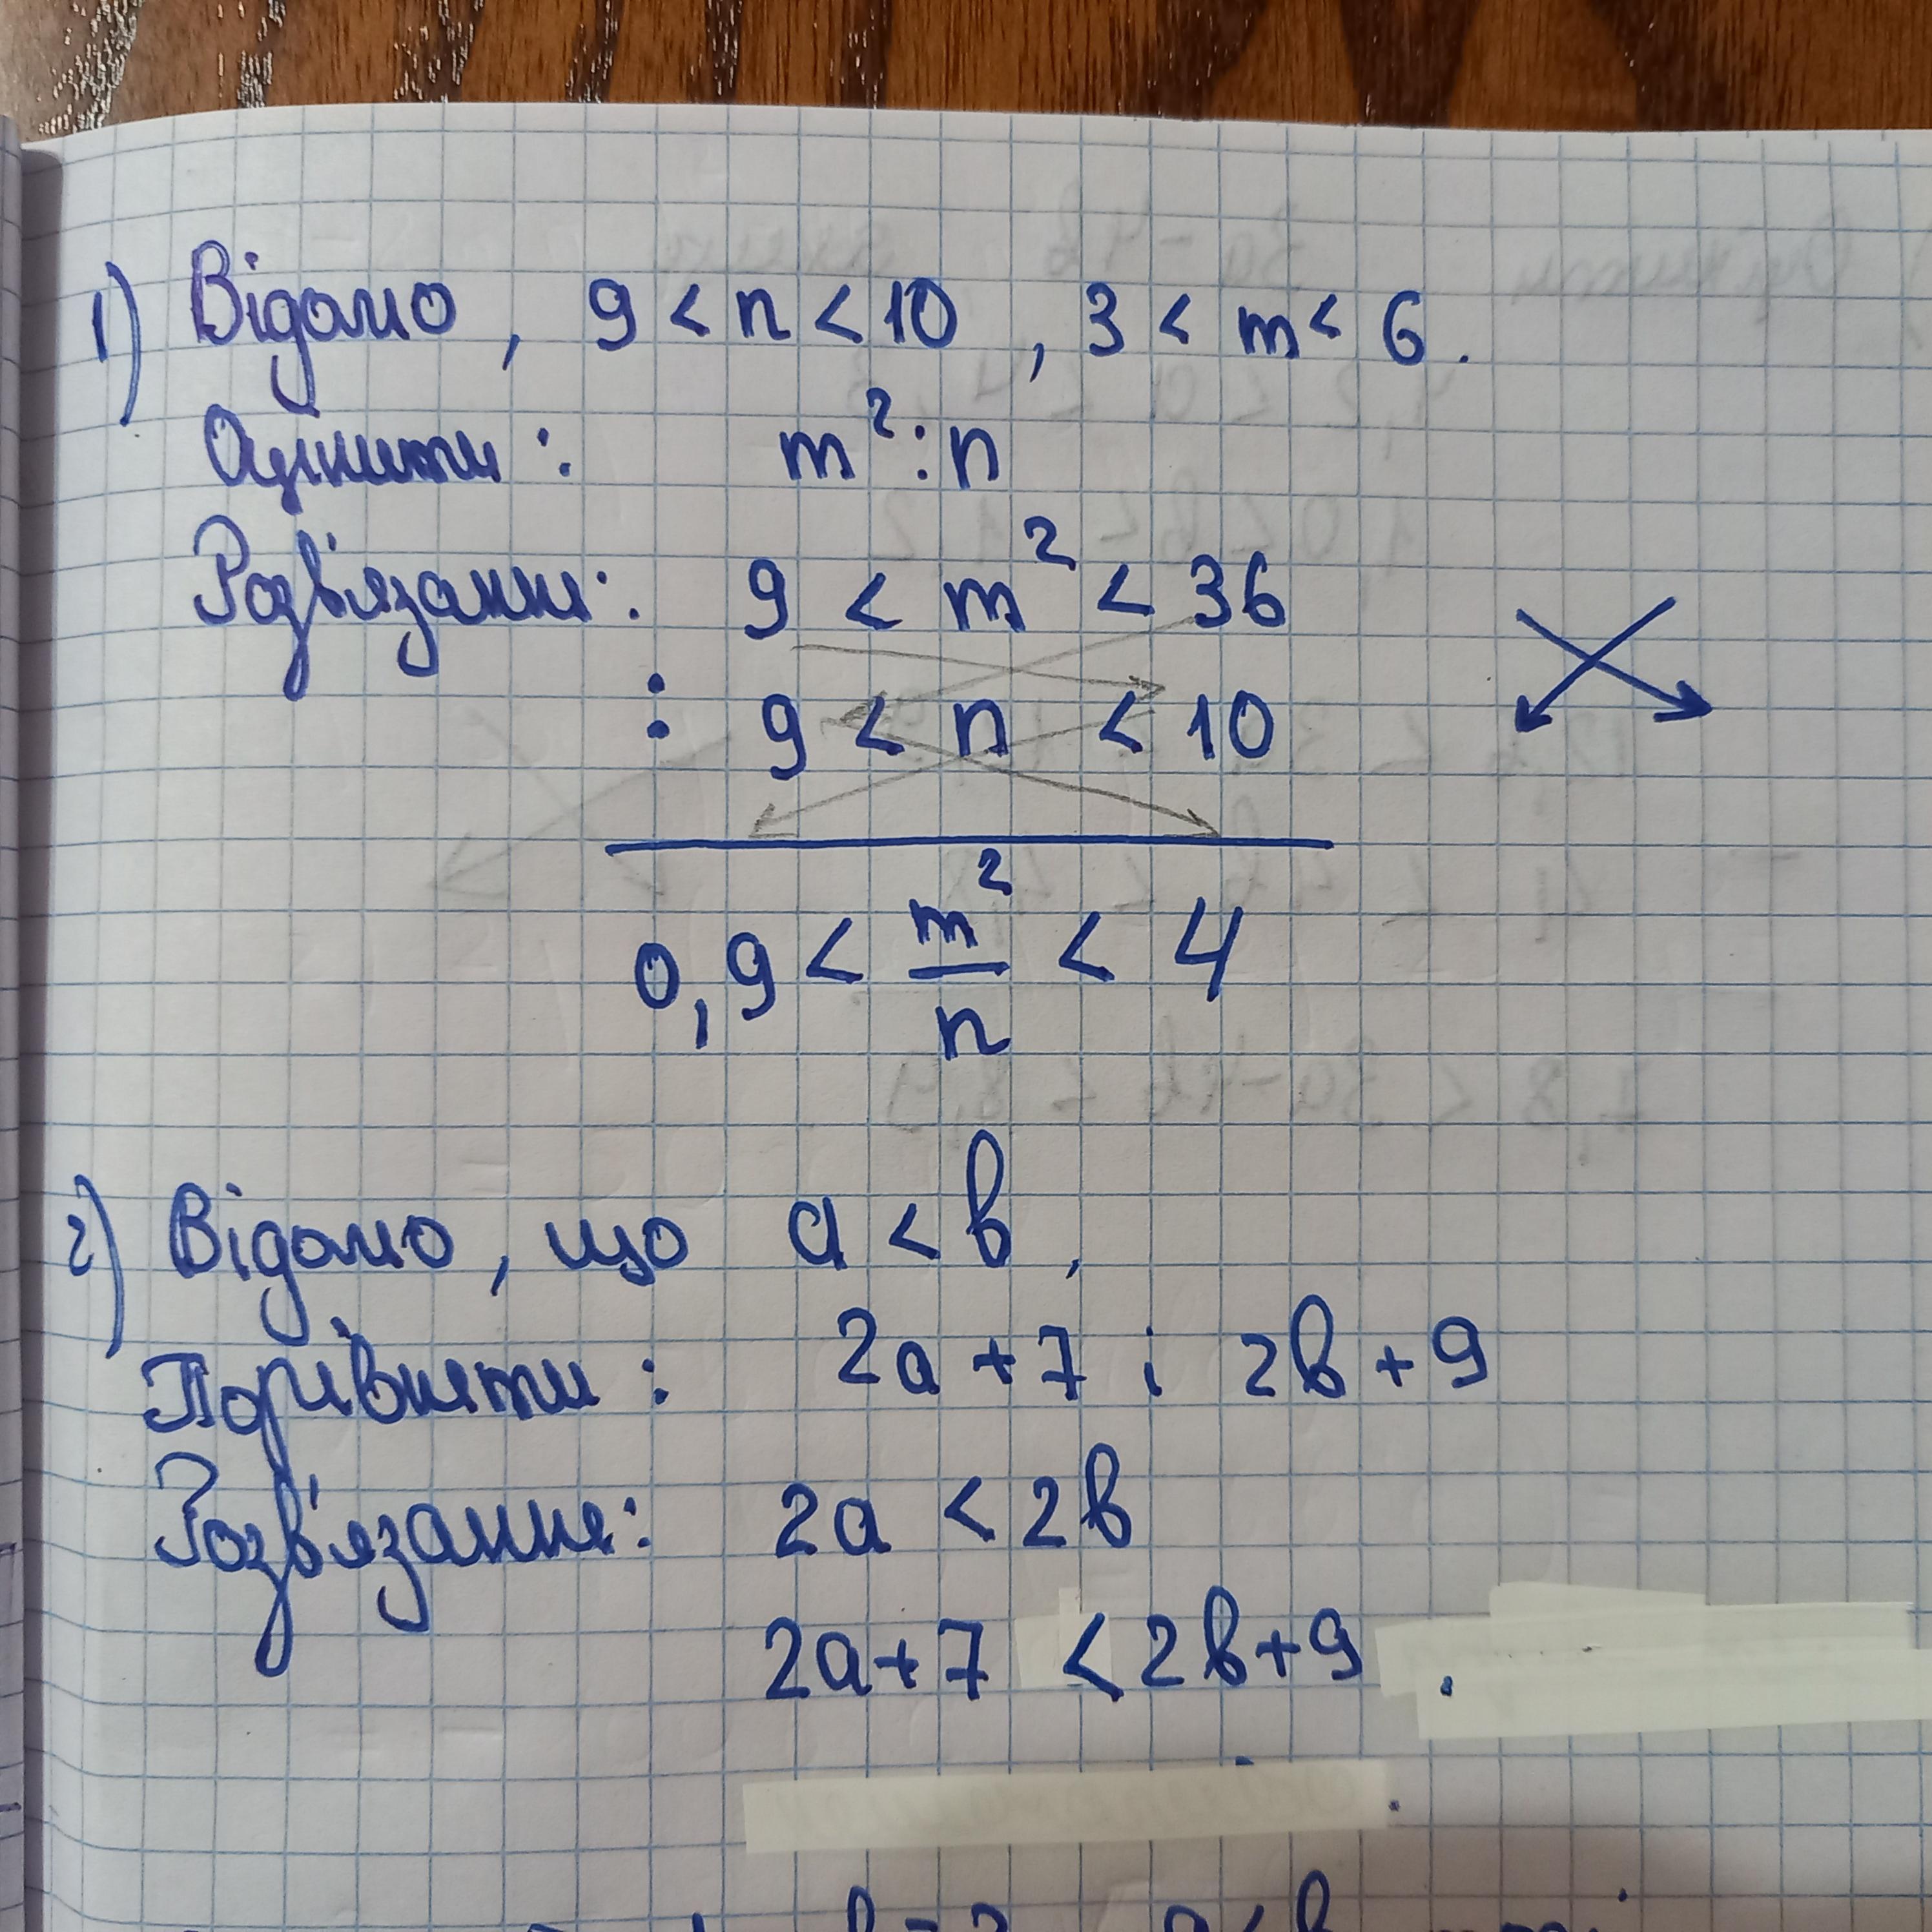 1) Відомо, 9 < n < 10, 3 < m < 6.
Оцінити: m²:n
Розв'язання: 9 < m² < 36
: 9 < n < 10
0,9 < m²/n < 4
2) Відомо, що a < b,
Порівняти: 2a + 7 і 2b + 9
Розв'язання: 2a < 2b
2a+7 < 2b+9.